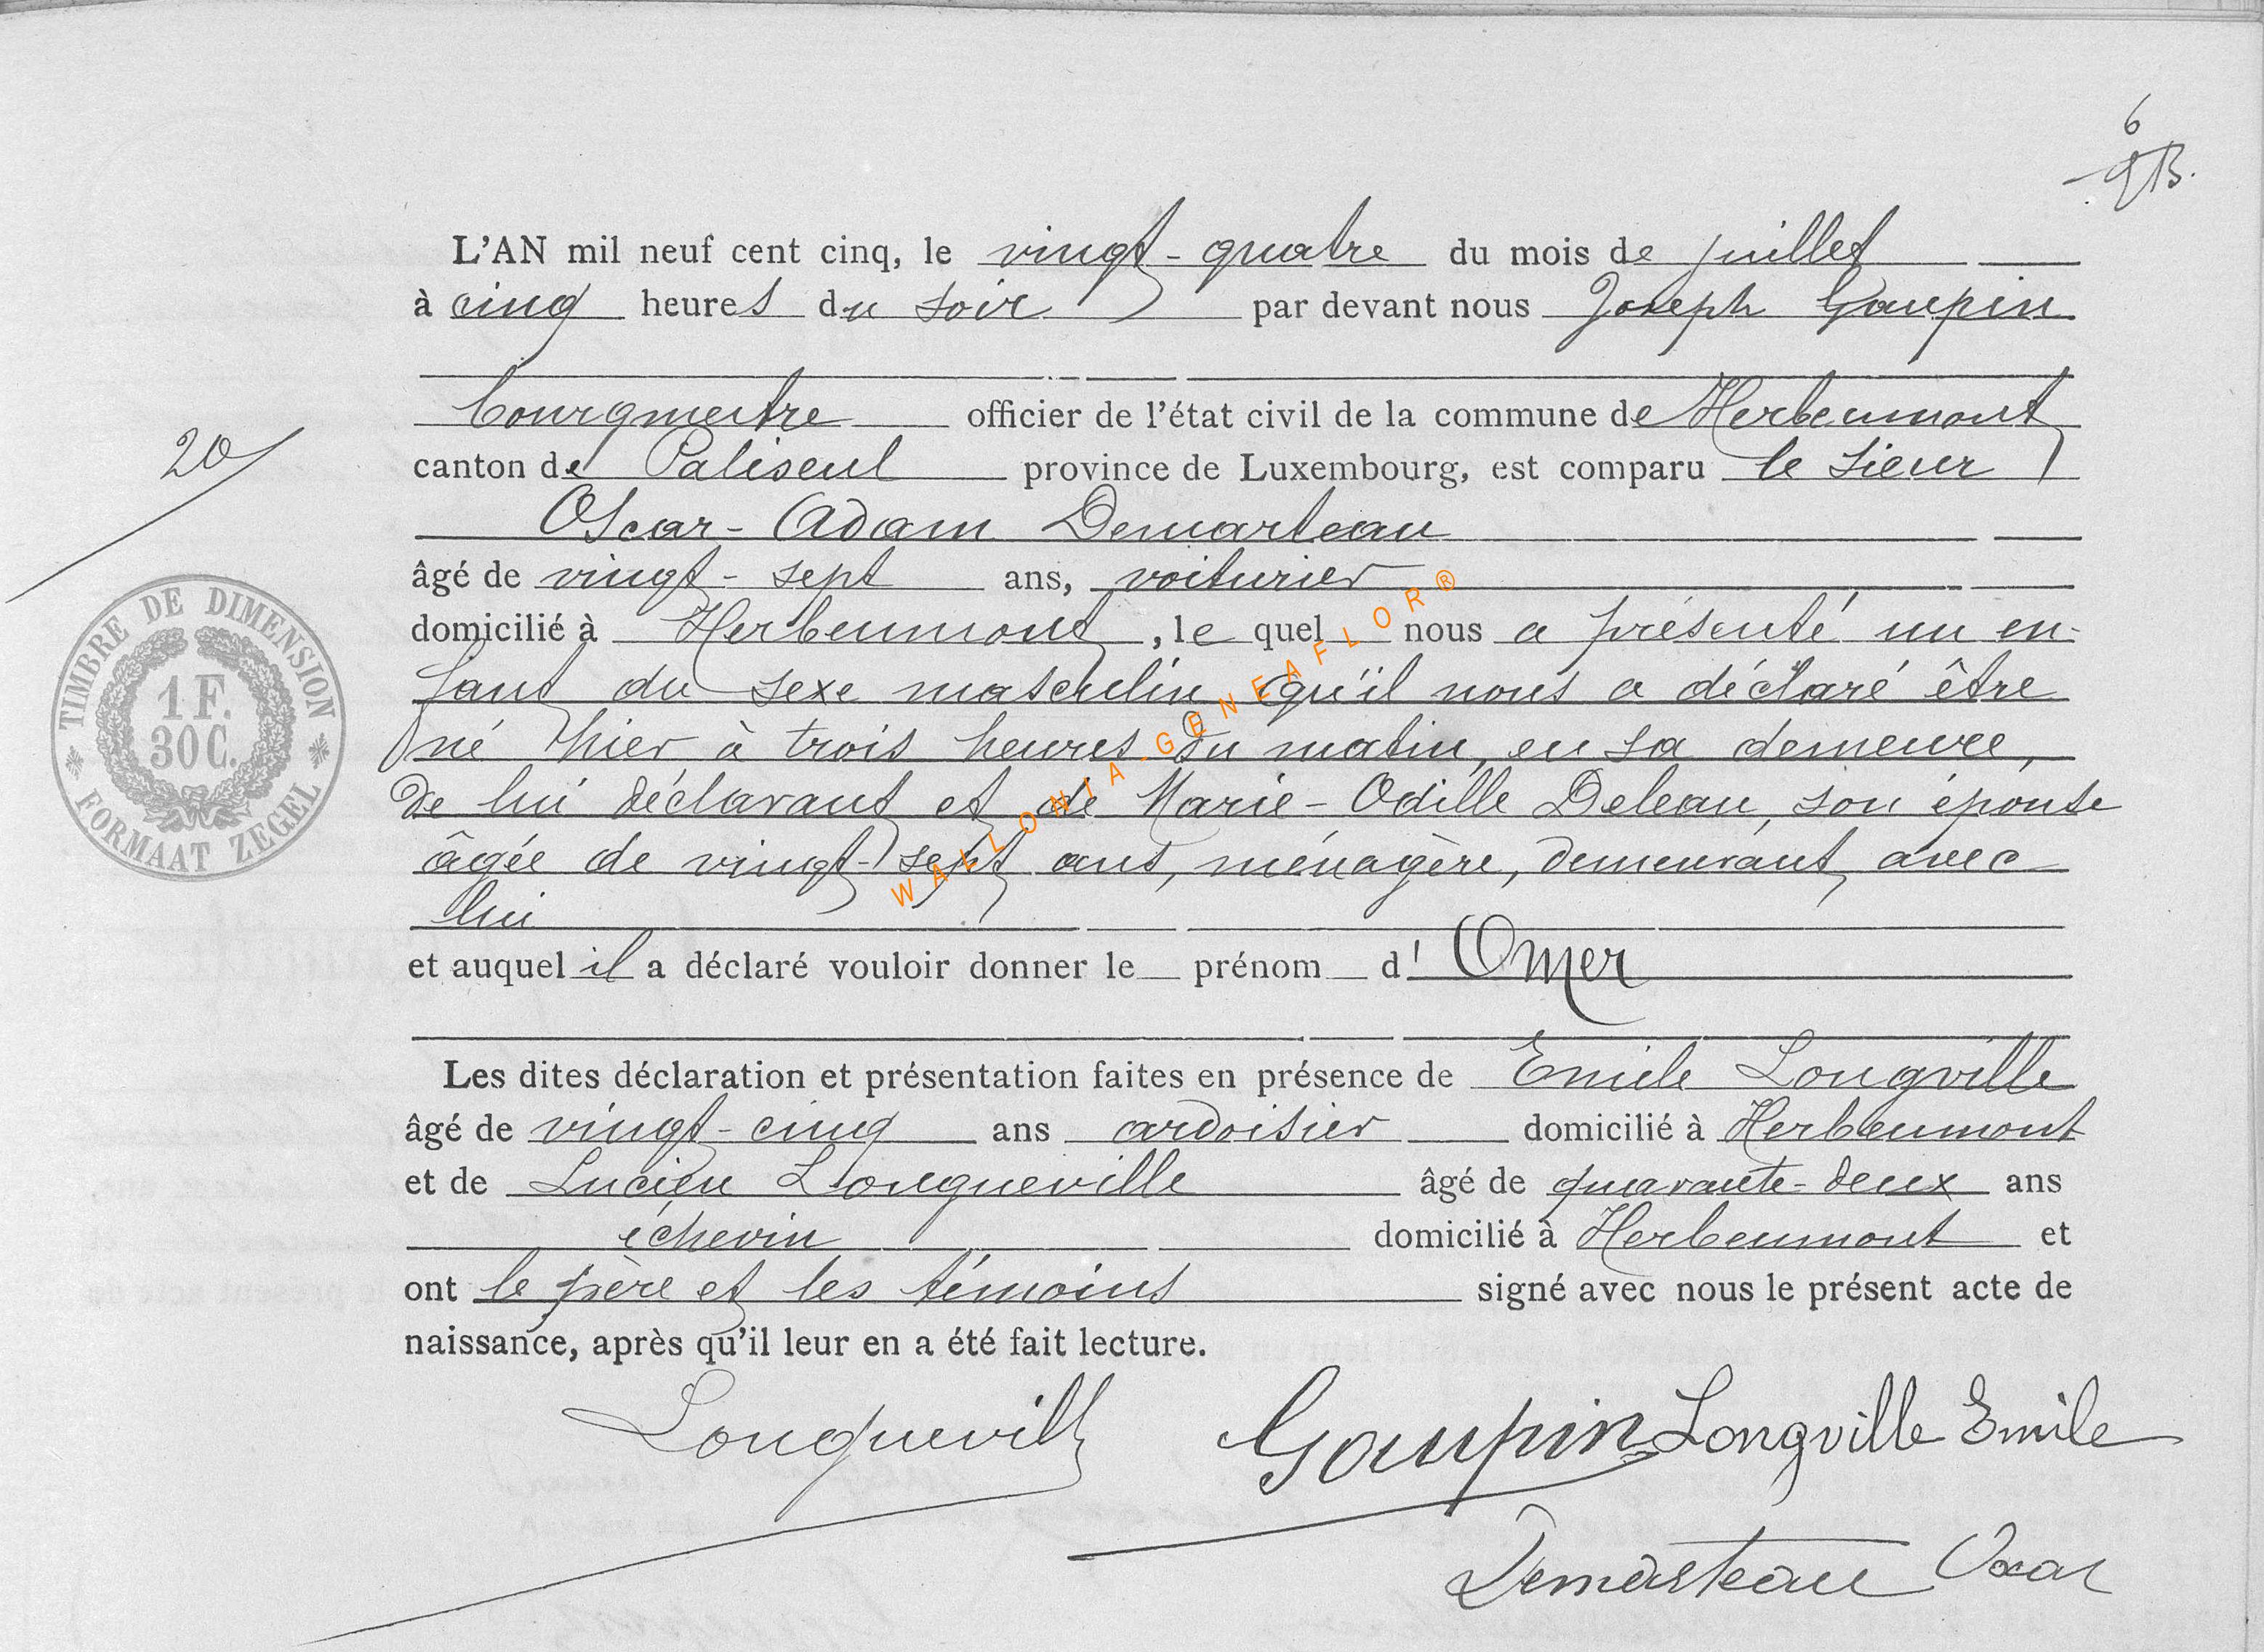 6
L'AN mil neuf cent cinq, le vingt-quatre du mois de juillet
à cinq heures du soir par devant nous Joseph Gaupin
bourgmestre officier de l'état civil de la commune de Herbeumont
canton de Paliseul province de Luxembourg, est comparu le sieur
20
Oscar-Adam Demarteau
âgé de vingt-sept ans, voiturier
domicilié à Herbeumont, le quel nous a présenté un en-
fant du sexe masculin qu'il nous a déclaré être
né hier à trois heures du matin, en sa demeure,
de lui déclarant et de Marie-Odille Deleau, son épouse
âgée de vingt-sept ans, ménagère, demeurant avec
lui
et auquel il a déclaré vouloir donner le prénom d' Omer
Les dites déclaration et présentation faites en présence de Emile Longville
âgé de vingt-cinq ans ardoisier domicilié à Herbeumont
et de Lucien Longueville âgé de quarante-deux ans
échevin domicilié à Herbeumont et
ont le père et les témoins signé avec nous le présent acte de
naissance, après qu'il leur en a été fait lecture.
Longueville Gaupin Longville Emile
Demarteau Oscar
TIMBRE DE DIMENSION
1 F.
30 C.
FORMAAT ZEGEL
WALLONIA-GENEAFLOR®